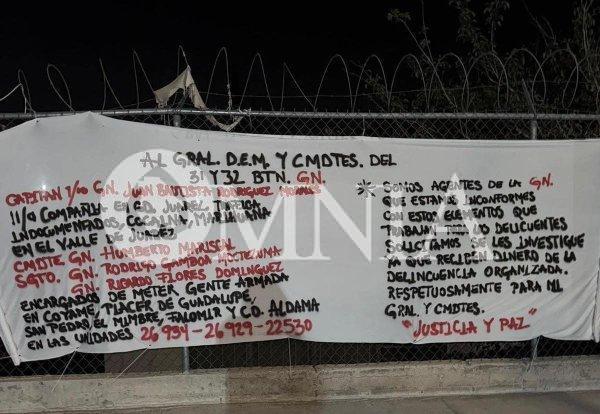 AL GRAL. D.E.M. Y CMDTES. DEL
31 Y 32 BTN. GN.
CAPITAN 1/00 GN. JUAN BAUTISTA RODRIGUEZ MORALES
11/a COMPAÑIA EN CD. JUAREZ TRAFICA
INDOCUMENTADOS, COCAINA, MARIHUANA
EN EL VALLE DE JUAREZ
CMDTE GN. HUMBERTO MARISCAL
SGTO. GN. RODRIGO GAMBOA MOCTEZUMA
GN. RICARDO FLORES DOMINGUEZ
ENCARGADOS DE METER GENTE ARMADA
EN COYAME, PLACER DE GUADALUPE,
SAN PEDRO, EL MIMBRE, FALOMIR Y CD. ALDAMA
EN LAS UNIDADES 26934-26929-22530
SOMOS AGENTES DE LA GN.
QUE ESTAMOS INCONFORMES
CON ESTOS ELEMENTOS QUE
TRABAJAN LOS DELICUENTES
SOLICITAMOS SE LES INVESTIGUE
YA QUE RECIBEN DINERO DE LA
DELINCUENCIA ORGANIZADA.
RESPETUOSAMENTE PARA MI
GRAL. Y CMDTES.
"JUSTICIA Y PAZ"
OMNIA